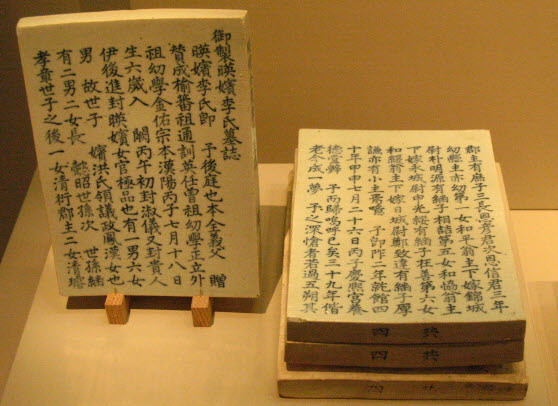 御製暎嬪李氏墓誌
暎嬪李氏卽 予後庭也本全義父 贈
贊成楡蕃祖通訓英任曾祖幼學正立外
祖幼學金佑宗本漢陽丙子七月十八日
生六歲入 闕丙午初封淑儀又封貴人
伊後進封暎嬪女官極品也有一男六女
男 故世子 嬪洪氏領議政鳳漢女也
有二男二女長 懿昭世孫次 世孫繼
孝章世子之後一女清衍郡主二女清璿
郡主有庶子三長恩彦君次恩信君三年
幼縣主亦幼第一女和平翁主下嫁錦城
尉朴明源有繼子相喆第五女和協翁主
下嫁永城尉申光綏有繼子在善第六女
和緩翁主下嫁日城尉鄭致達有繼子厚
謙亦有主焉噫 予卽阼二年 館四
十年甲申七月二十六日丙子慶熙宮養
德堂辭 予 歸嗚呼已矣三十九年偕
老今成一夢 予之深愴者若過五朔其
共 四
共 四
共 四